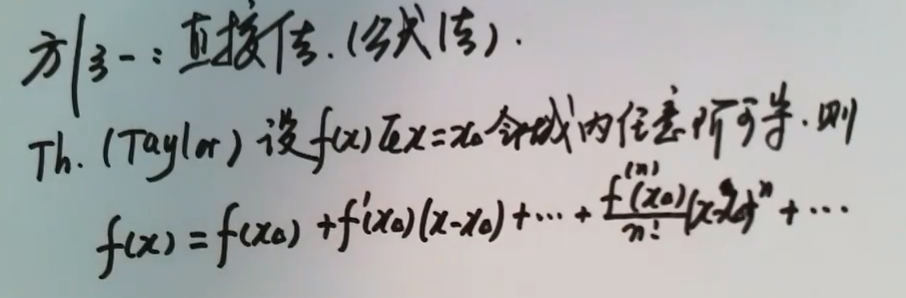 方法一:直接法.(公式法).
Th. (Taylor) 设f(x)在x=x₀邻域内任意阶可导.则
f(x) = f(x₀) + f'(x₀)(x-x₀) + ⋯ + f⁽ⁿ⁾(x₀)/n! (x-x₀)ⁿ + ⋯